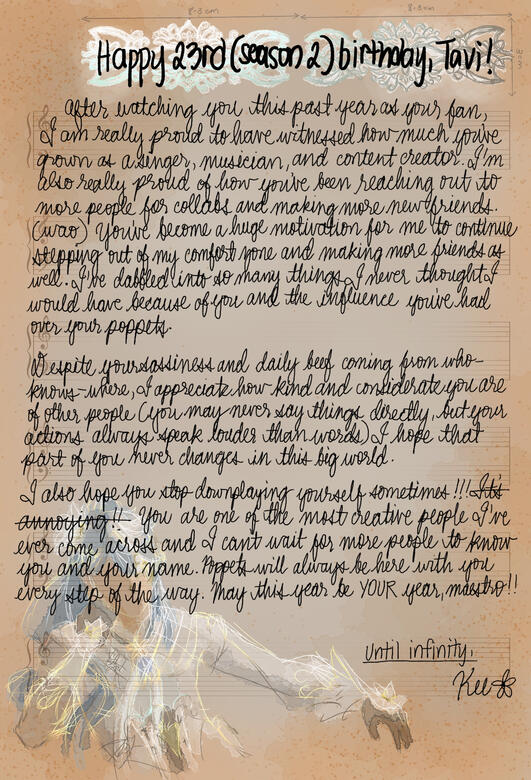 8.3 cm
8.3cm
Happy 23rd (season 2) birthday, Tavi!
After watching you this past year as your fan,
I am really proud to have witnessed how much you've
grown as a singer, musician, and content creator. I'm
also really proud of how you've been reaching out to
more people for collabs and making more new friends.
(uwao) You've become a huge motivation for me to continue
stepping out of my comfort zone and making more friends as
well. I've dabbled into so many things I never thought I
would have because of you and the influence you've had
over your poppets.
Despite your sassiness and daily beef coming from who-
knows-where, I appreciate how kind and considerate you are
of other people (you may never say things directly, but your
actions always speak louder than words) I hope that
part of you never changes in this big world.
I also hope you stop downplaying yourself sometimes!!! It's
annoying!! You are one of the most creative people I've
ever come across and I can't wait for more people to know
you and your name. Poppets will always be here with you
every step of the way. May this year be YOUR year, maestro!!
Until infinity,
Kee